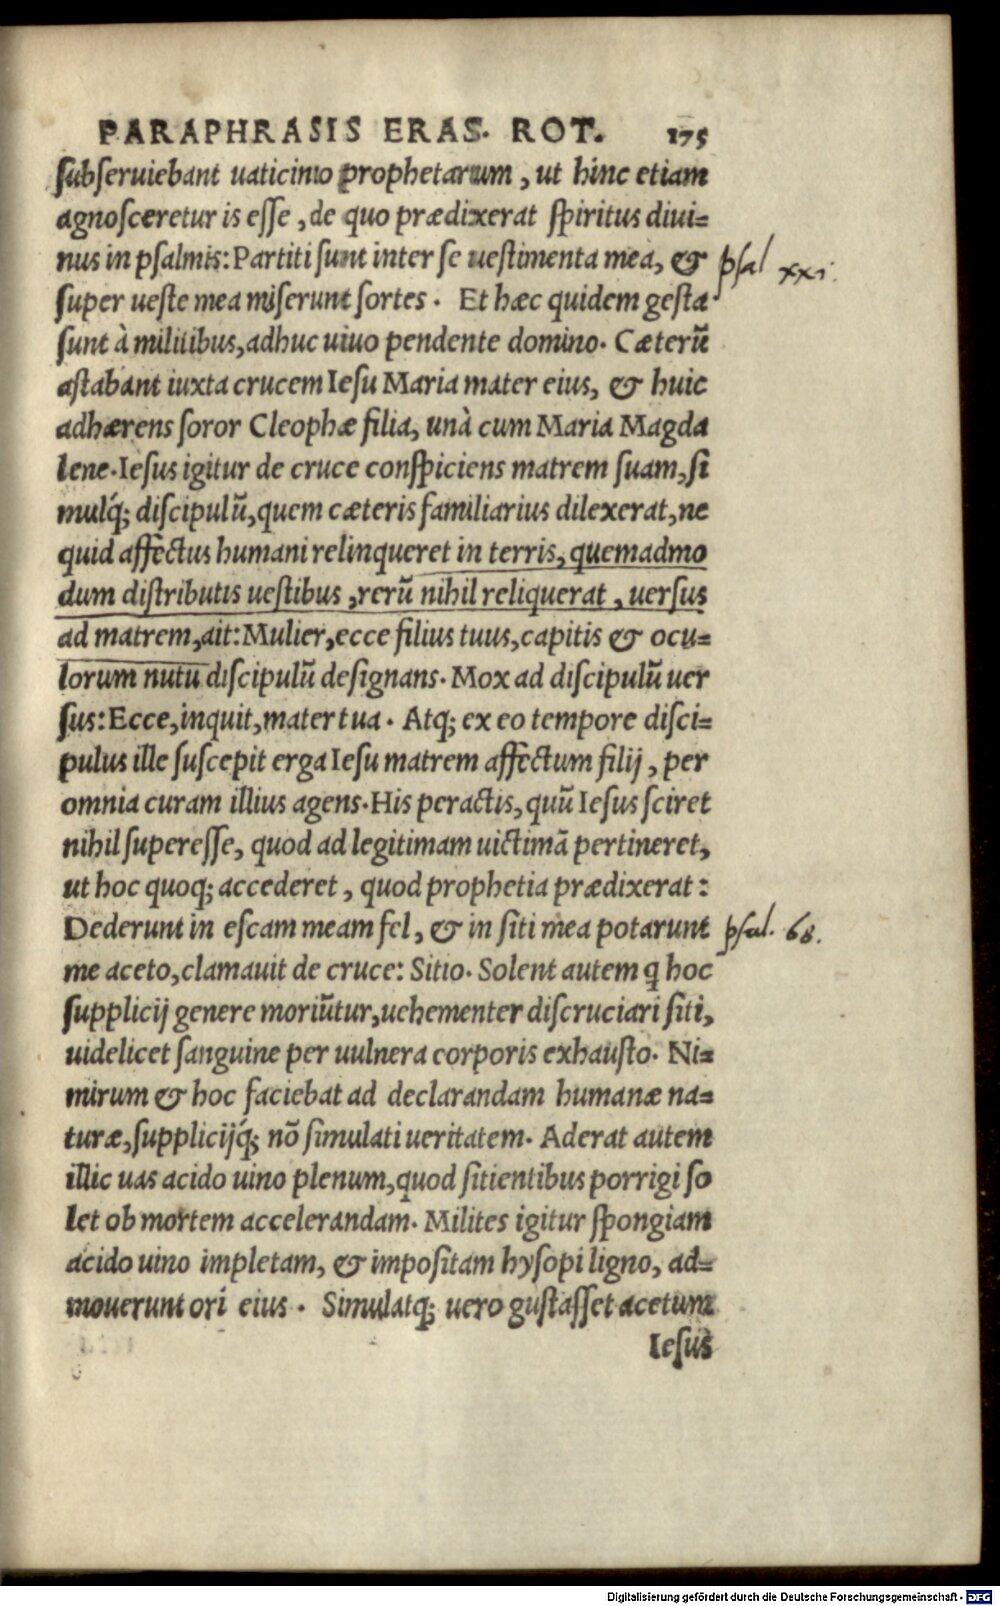 PARAPHRASIS ERAS. ROT. 175
subseruiebant uaticinio prophetarum, ut hinc etiam
agnosceretur is esse, de quo prædixerat spiritus diui=
nus in psalmis: Partiti sunt inter se uestimenta mea, &
psal xxi.
super ueste mea miserunt sortes. Et hæc quidem gesta
sunt à militibus, adhuc uiuo pendente domino. Cæterũ
astabant iuxta crucem Iesu Maria mater eius, & huic
adhærens soror Cleophæ filia, unà cum Maria Magda
lene. Iesus igitur de cruce conspiciens matrem suam, si
mulq́; discipulũ, quem cæteris familiarius dilexerat, ne
quid affectus humani relinqueret in terris, quemadmo
dum distributis uestibus, rerũ nihil reliquerat, uersus
ad matrem, ait: Mulier, ecce filius tuus, capitis & ocu=
lorum nutu discipulũ designans. Mox ad discipulũ uer
sus: Ecce, inquit, mater tua. Atq; ex eo tempore disci=
pulus ille suscepit erga Iesu matrem affectum filij, per
omnia curam illius agens. His peractis, quũ Iesus sciret
nihil superesse, quod ad legitimam uictimã pertineret,
ut hoc quoq; accederet, quod prophetia prædixerat:
Dederunt in escam meam fel, & in siti mea potarunt
psal. 68.
me aceto, clamauit de cruce: Sitio. Solent autem q hoc
supplicij genere moriũtur, uehementer discruciari siti,
uidelicet sanguine per uulnera corporis exhausto. Ni=
mirum & hoc faciebat ad declarandam humanæ na=
turæ, supplicijq́; nõ simulati ueritatem. Aderat autem
illic uas acido uino plenum, quod sitientibus porrigi so
let ob mortem accelerandam. Milites igitur spongiam
acido uino impletam, & impositam hysopi ligno, ad=
mouerunt ori eius. Simulatq; uero gustasset acetum
Iesus
Digitalisierung gefördert durch die Deutsche Forschungsgemeinschaft - DFG